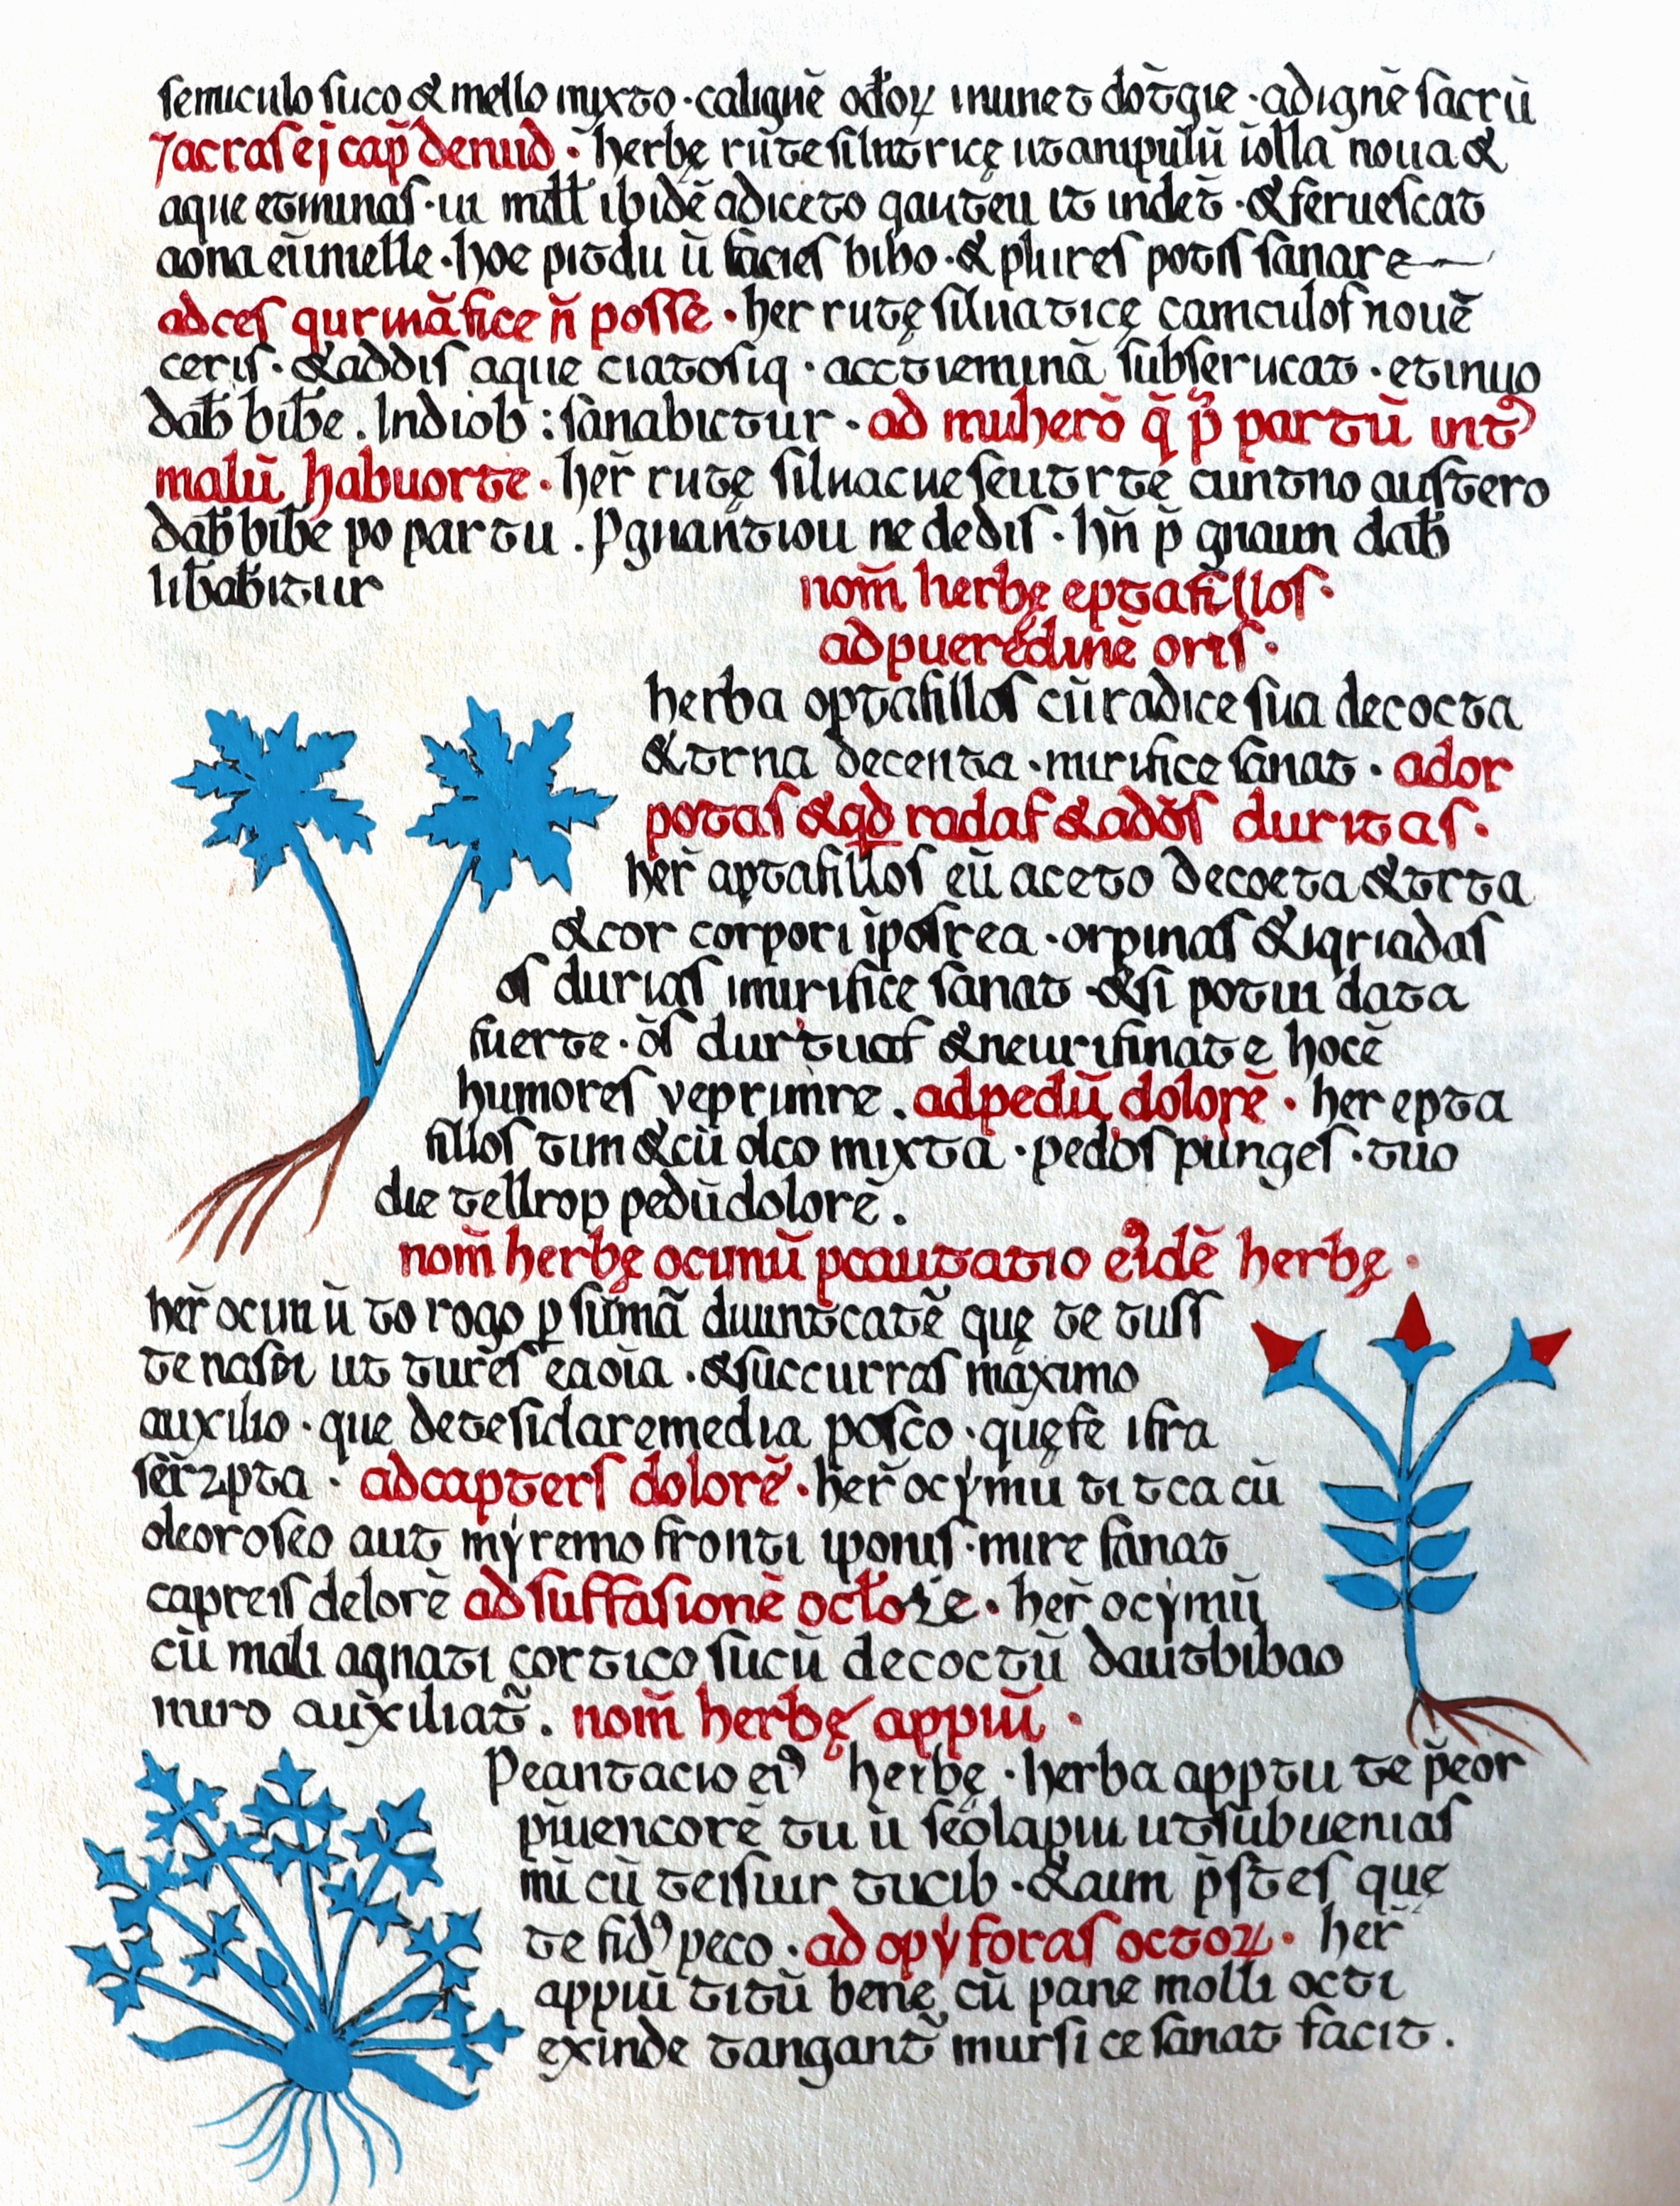 semiculo suco & mello mixto · caliginē octoꝝ inunet dōtgie · adignē sacrū
⁊acrasej cap̄ denud · h̄erbę rūte silutricę ut anipulū īolla noua &
aque etminas · ui mełł ibidē adiceto qauteu it indet̄ · & feruescat
aona eūmelle · hoe pitdu ū facies bibo · & plures potis sanare
ad ces qurināfice n̄ posse · her rutę siluaticę camculos nouē
ceris · & addis aque ciatosiq · acctieminā subserucat · etinuo
dab̄ bib̄e . Indiob : sanabictur · ad muherō q̄ p̄ partū int̄
malū habuorte · her̄ rutę siluacue seutrtę cuntno austero
dab̄ bib̄e po partu . pgnan̄tiou ne dedis · hn̄ p̄ gnaum dab̄
lib̄ab̄itur
nom̄ herbę eptafillos ·
ad pueredinē oris ·
herba optafillos cū radice sua decocta
& trna decenta · mirifice sanat · ador
potas & qd radas & adōs duritas ·
her̄ aptafillos eū aceto decoeta & trta
& cor corpori īposrea · orpinas & iqriadas
os durias imirifice sanat · & si potui data
fuerte · ōs durtuas & neurifinate hocē
humores veprimre . ad pedū dolorē · her epta
fillos tim & cū olco mixta · pedos punges · tuo
die tellrop pedū dolorē .
nom̄ herbę ocimū pcautatio eidē herbę ·
her̄ ocun ū to rogo ꝑ sūmā duuntcatē quę te tuss
te nasci ut turēs eaoīa · & succurras maximo
auxilio · que detesidaremedia posco · quęfe ifra
ser̄zpta · ad capters dolorē · her̄ ocẏmū ti tca cū
oleoroseo aut mẏremo fronti iponis · mire sanat
capreis delorē ad suffasionē octore · her̄ ocẏmū
cū mali agnati cortico sucū decoctū dautbibao
miro auxiliat̄ . nom̄ herbę appiū ·
Peantacio ei⁹ herbę · herba apptu te p̄eor
pīuencorē tu ū seolapiu ut subuenias
mī cū teisiur tucib · & aum p̄stes quę
te fid⁹ peco · ad opẏforas octoꝝ · her̄
appiū titū bene cū pane molli octi
exinde tangant̄ mursi ce sanat facit .